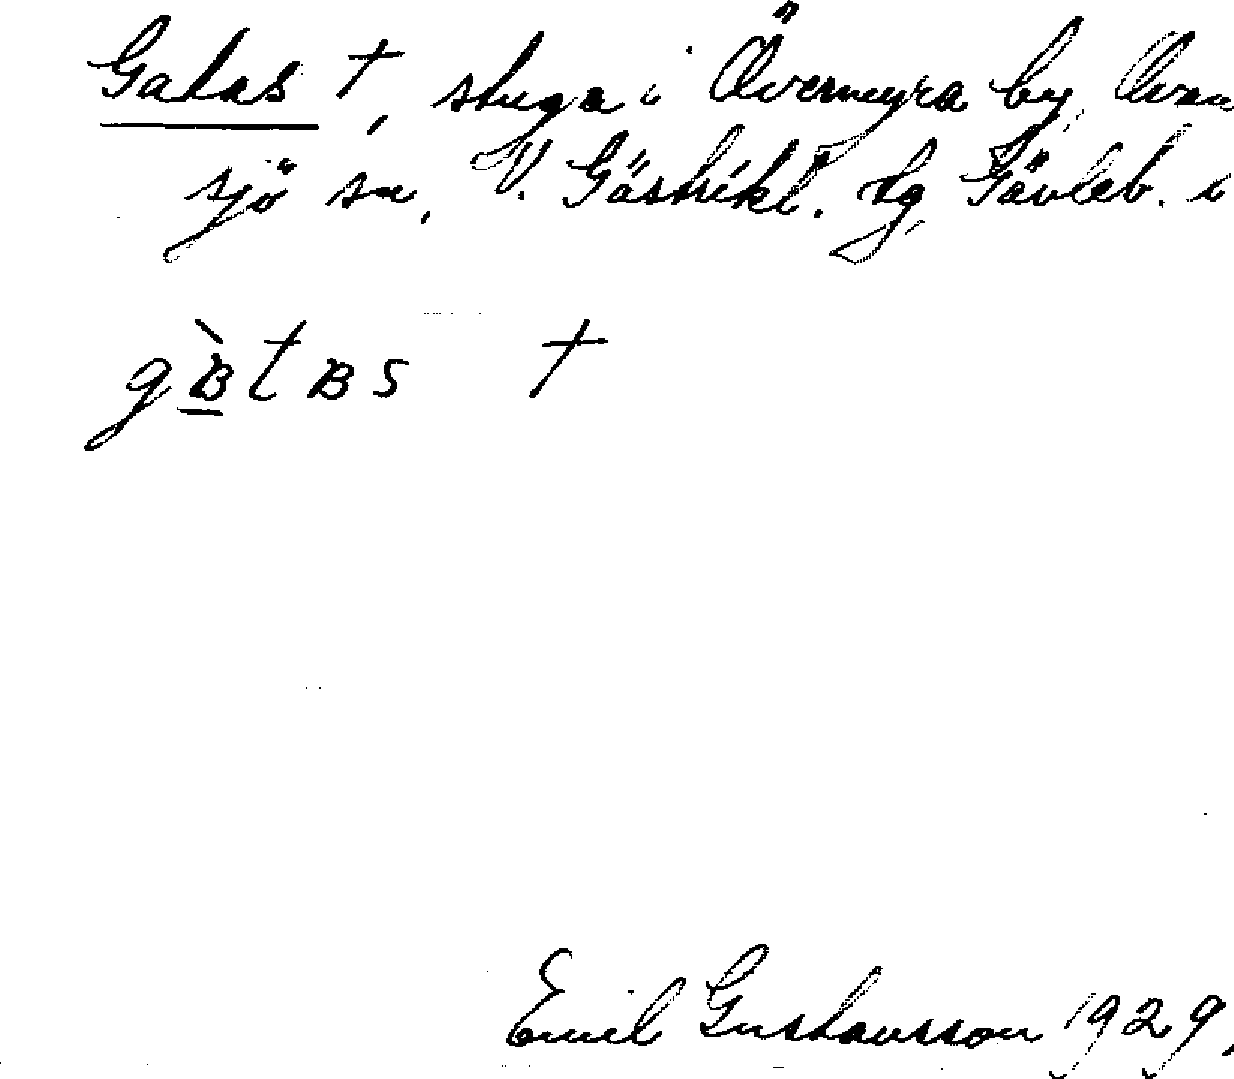 Gatas †, stuga i Övermyra by, Ovan
sjö sn, V. Gästrikl. tg, Gävleb. l
gB̀tBs †
Emil Gustavsson 1929.